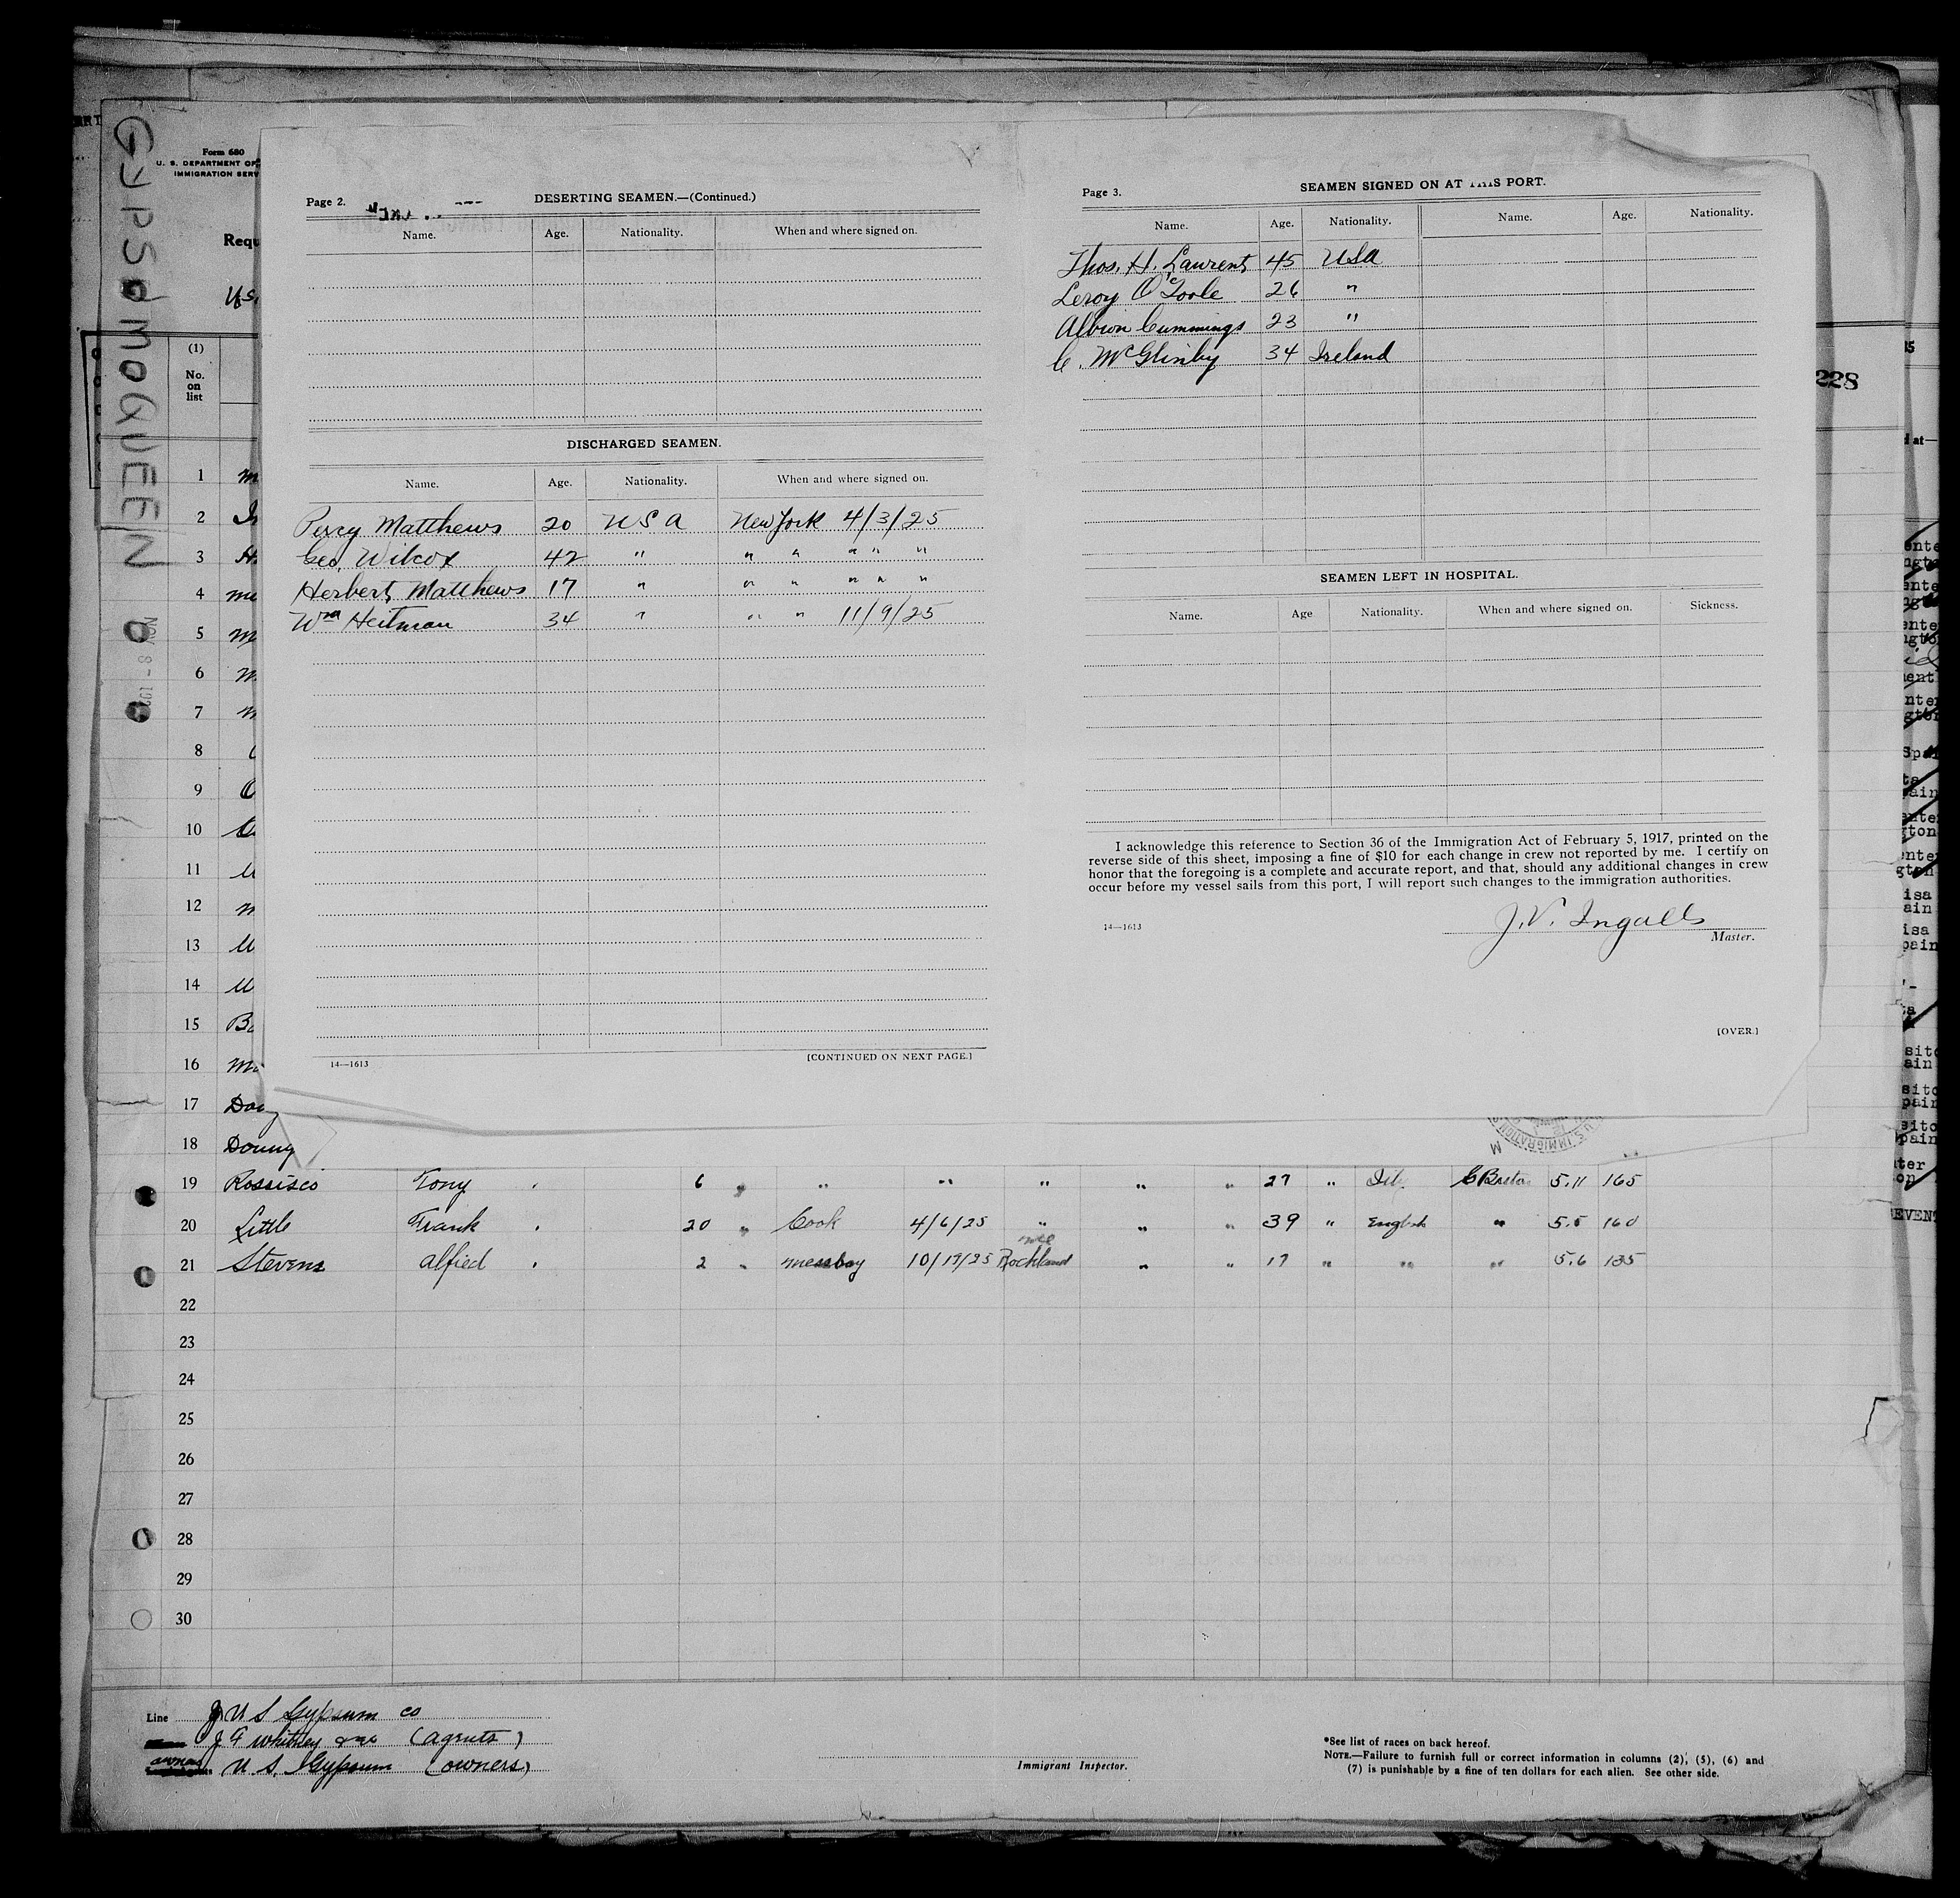 GYPSUM QUEEN
Form 680
U. S. DEPARTMENT OF
IMMIGRATION SERV
Requ
228
(1)
No.
on
list
Page 2.
DESERTING SEAMEN.—(Continued.)
Name. Age. Nationality. When and where signed on.
DISCHARGED SEAMEN.
Name. Age. Nationality. When and where signed on.
Percy Matthews 20 U S A New York 4/3/25
Geo. Wilcox 42 " " " " " "
Herbert Matthews 17 " " " " " "
Wm Heitman 34 " " " 11/9/25
14—1613
[CONTINUED ON NEXT PAGE.]
Page 3.
SEAMEN SIGNED ON AT THIS PORT.
Name. Age. Nationality. Name. Age. Nationality.
Thos. H. Laurent 45 USA
Leroy O'Toole 26 "
Albion Cummings 23 "
C. McGlinby 34 Ireland
SEAMEN LEFT IN HOSPITAL.
Name. Age Nationality. When and where signed on. Sickness.
I acknowledge this reference to Section 36 of the Immigration Act of February 5, 1917, printed on the
reverse side of this sheet, imposing a fine of $10 for each change in crew not reported by me. I certify on
honor that the foregoing is a complete and accurate report, and that, should any additional changes in crew
occur before my vessel sails from this port, I will report such changes to the immigration authorities.
J. V. Ingalls
14—1613
Master.
[OVER.]
1
2
3
4
5
6
7
8
9
10
11
12
13
14
15
16
17
18
19 Rossisco Tony 6 " " " " " " 27 " C Breton 5.11 165
20 Little Frank 20 " Cook 4/6/25 " " " 39 " English " 5.5 160
21 Stevens Alfied 2 " messboy 10/19/25 Rockland " " 17 " " " 5.6 135
22
23
24
25
26
27
28
29
30
Line U S Gypsum co
J F Whitney & co (agents)
owners U. S. Gypsum (owners)
Immigrant Inspector.
*See list of races on back hereof.
NOTE.—Failure to furnish full or correct information in columns (2), (5), (6) and
(7) is punishable by a fine of ten dollars for each alien. See other side.